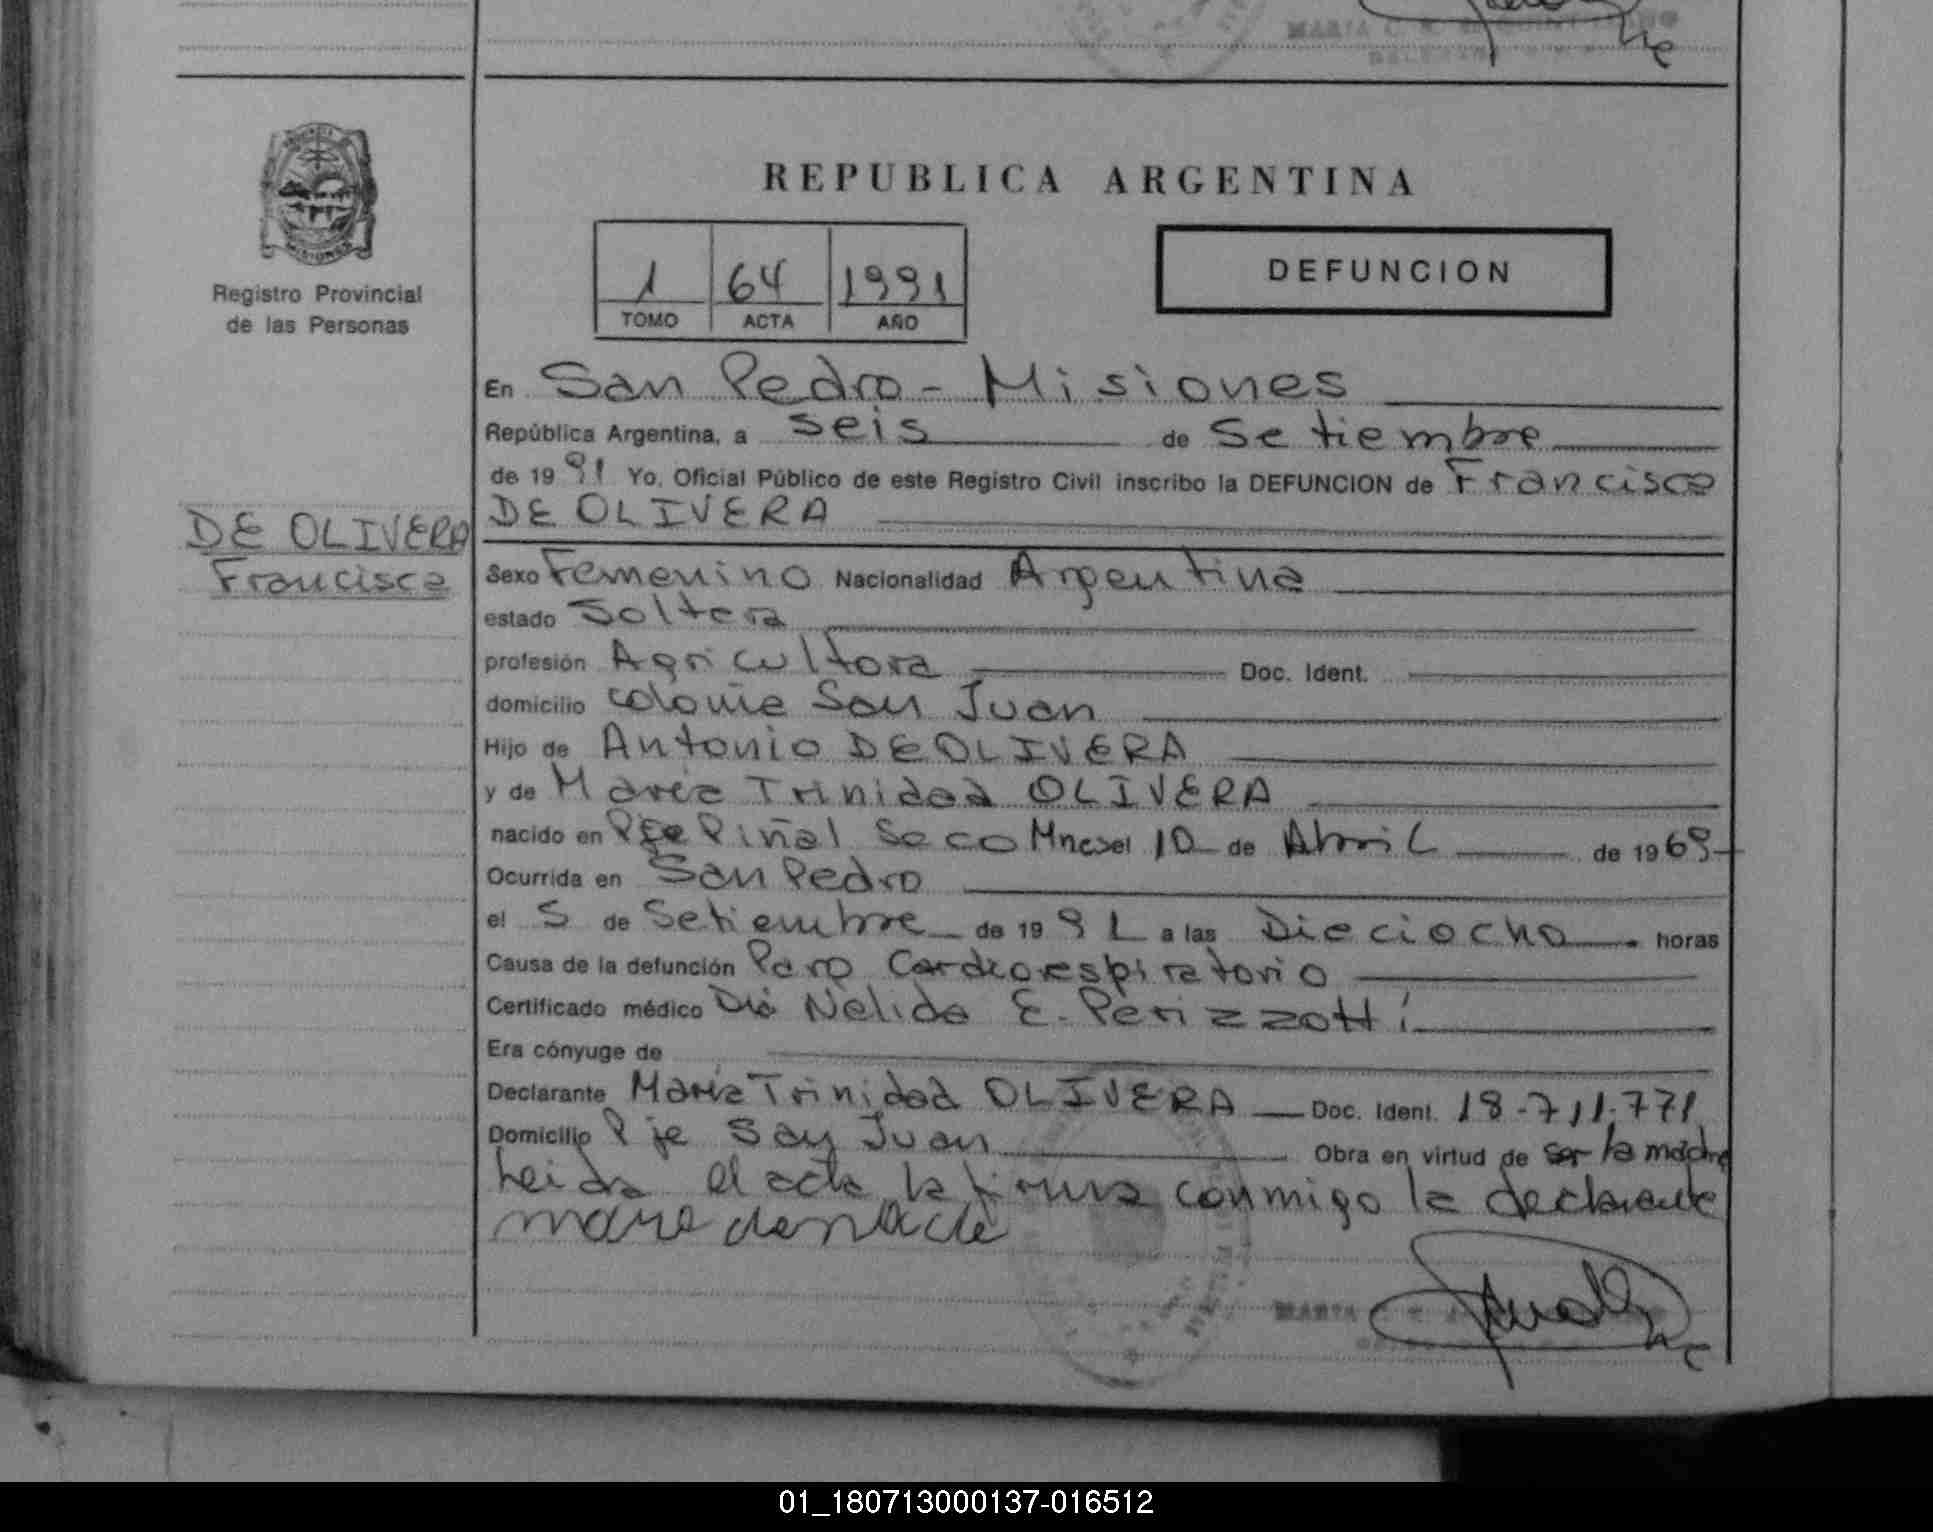 REPUBLICA ARGENTINA
1 64 1991
TOMO ACTA AÑO
DEFUNCION
Registro Provincial
de las Personas
DE OLIVERA
Francisca
En San Pedro - Misiones
República Argentina, a seis de Setiembre
de 1991 Yo, Oficial Público de este Registro Civil inscribo la DEFUNCION de Francisca
DE OLIVERA
Sexo Femenino Nacionalidad Argentina
estado Soltera
profesión Agricultora Doc. Ident.
domicilio colonia San Juan
Hijo de Antonio DE OLIVERA
y de María Trinidad OLIVERA
nacido en Pje Piñal Seco Mnes el 10 de Abril de 1969
Ocurrida en San Pedro
el 5 de Setiembre de 1991 a las Dieciocho horas
Causa de la defunción Paro Cardiorespiratorio
Certificado médico Dra Nelida E. Perizzotti
Era cónyuge de
Declarante María Trinidad OLIVERA Doc. Ident. 18.711.771
Domicilio Pje San Juan Obra en virtud de ser la madre
Leida el acta la firma conmigo la declarante
MARIA
01_180713000137-016512